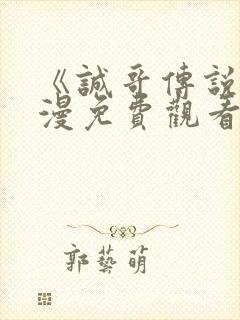 《誠哥傳說
漫免費觀看
郭藝萌